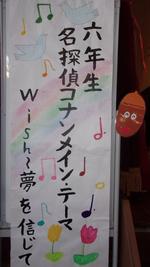 六年生
名探偵コナンメイン・テーマ
Wish～夢を信じて